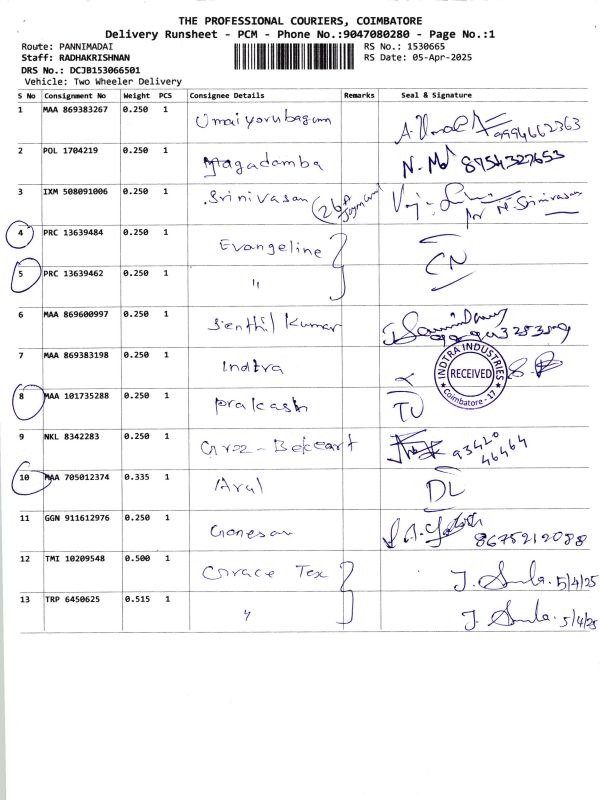 THE PROFESSIONAL COURIERS, COIMBATORE
Delivery Runsheet - PCM - Phone No.:9047080280 - Page No.:1
Route: PANNIMADAI
RS No.: 1530665
Staff: RADHAKRISHNAN
RS Date: 05-Apr-2025
DRS No.: DCJB153066501
Vehicle: Two Wheeler Delivery
S No Consignment No Weight PCS Consignee Details Remarks Seal & Signature
1 MAA 869383267 0.250 1 Umaiyorubagam 9994662363
2 POL 1704219 0.250 1 Jagadamba 8754327653
3 IXM 508091006 0.250 1 Srinivasan N. Srinivasan
4 PRC 13639484 0.250 1 Evangeline CN
5 PRC 13639462 0.250 1 "
6 MAA 869600997 0.250 1 Senthil Kumar
7 MAA 869383198 0.250 1 Indtra INDTRA INDUSTRIES RECEIVED Coimbatore - 17
8 MAA 101735288 0.250 1 Prakash
9 NKL 8342283 0.250 1 93420 46464
10 MAA 705012374 0.335 1 Arul DL
11 GGN 911612976 0.250 1 Ganesan 8675212088
12 TMI 10209548 0.500 1 Grace Tex 5/4/25
13 TRP 6450625 0.515 1 " 5/4/25